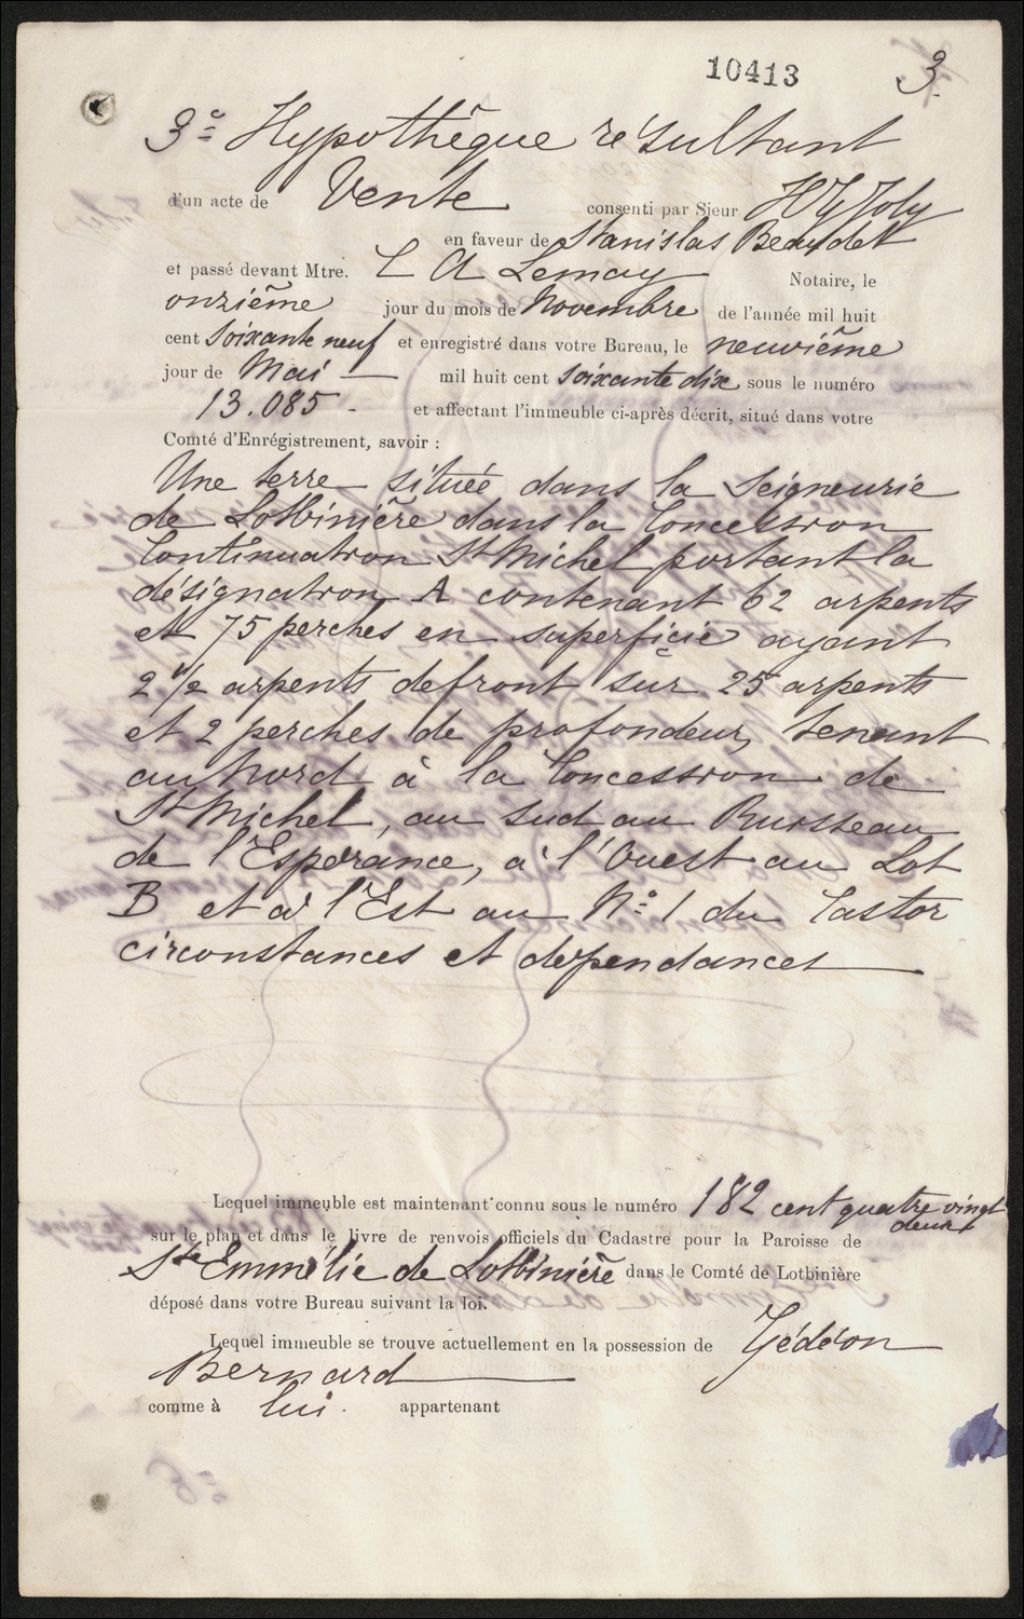 10413
3.
3º Hypothèque résultant
d'un acte de Vente consenti par Sieur H G Joly
en faveur de Stanislas Beaudet
et passé devant Mtre. L A Lemay Notaire, le
onzième jour du mois de Novembre de l'année mil huit
cent Soixante neuf et enregistré dans votre Bureau, le neuvième
jour de Mai mil huit cent Soixante dix sous le numéro
13.085 - et affectant l'immeuble ci-après décrit, situé dans votre
Comté d'Enrégistrement, savoir :
Une terre située dans la Seigneurie
de Lotbinière dans la Concession
Continuation St Michel portant la
désignation A contenant 62 arpents
et 75 perches en superficie ayant
2 1/2 arpents de front sur 25 arpents
et 2 perches de profondeur, tenant
au Nord à la Concession de
St Michel, au sud au Ruisseau
de l'Espérance, à l'Ouest au Lot
B et à l'Est au Nº 1 du Castor
circonstances et dépendances
Lequel immeuble est maintenant connu sous le numéro 182 cent quatre vingt
deux
sur le plan et dans le livre de renvois officiels du Cadastre pour la Paroisse de
Ste Emmélie de Lotbinière dans le Comté de Lotbinière
déposé dans votre Bureau suivant la loi.
Lequel immeuble se trouve actuellement en la possession de Gédéon
Bernard
comme à lui. appartenant